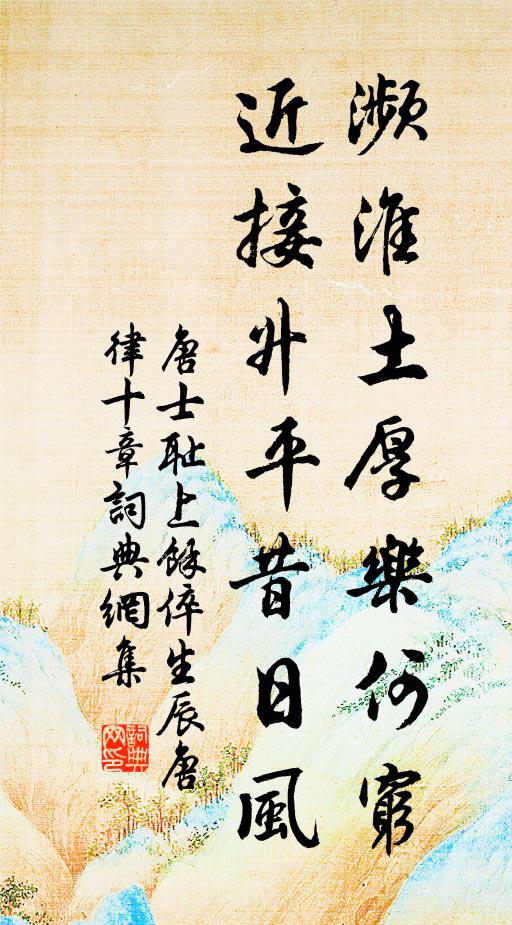 瀕淮土厚樂何窮
近接升平昔日風
唐士耻上餘倅生辰唐
律十章詞典網集
詞典
网印